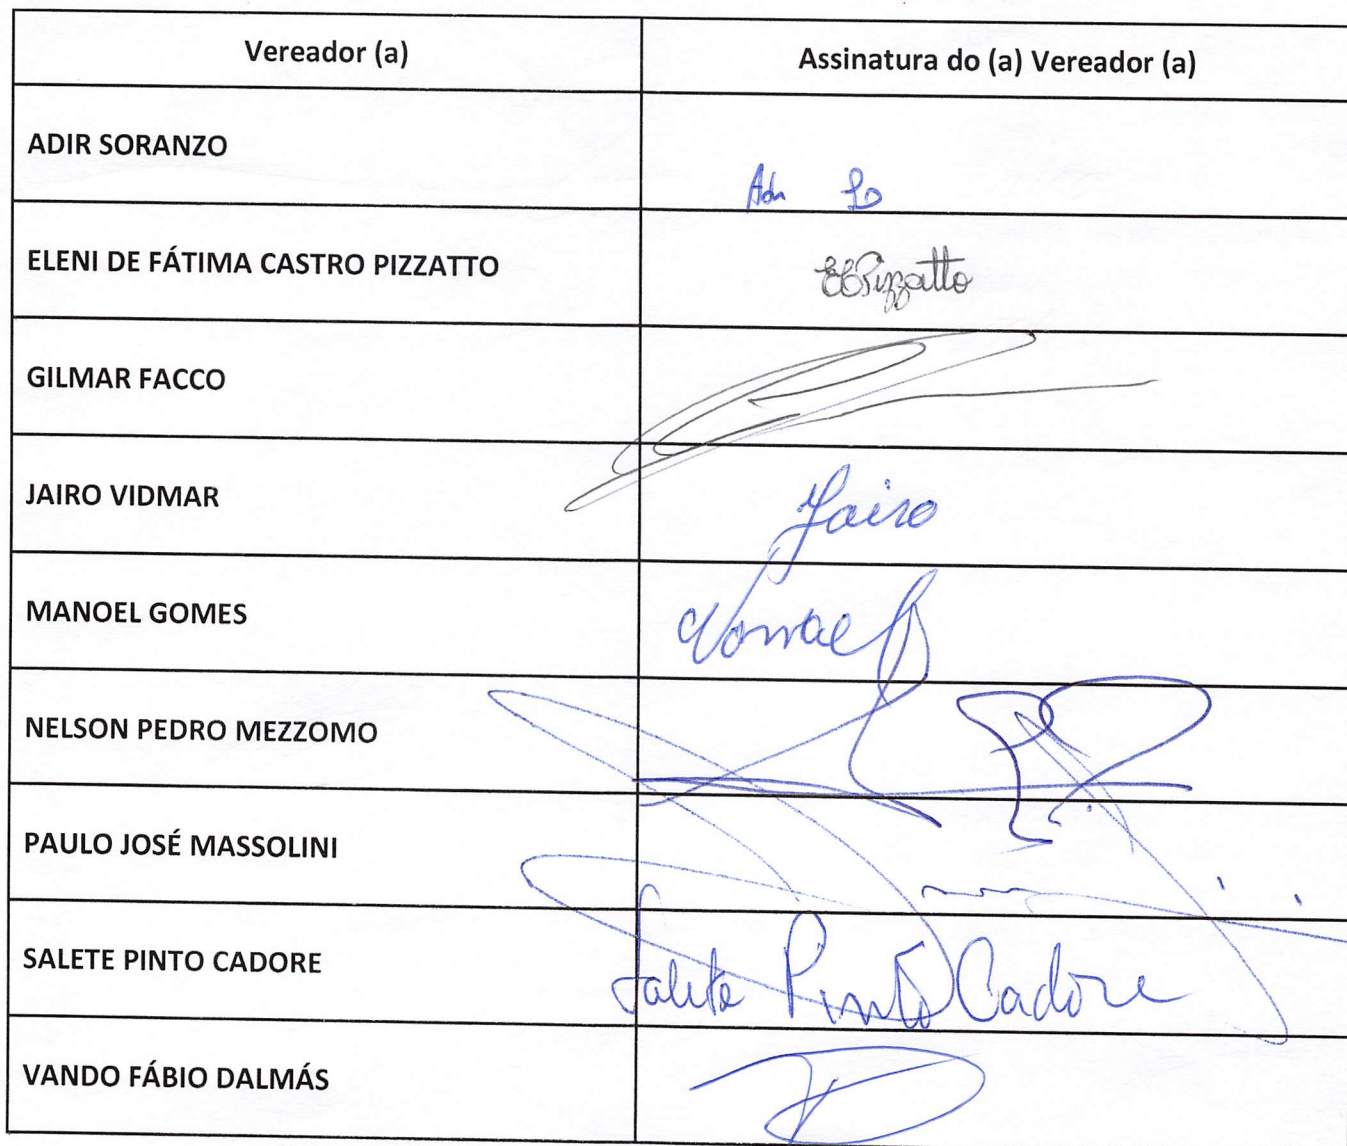 Vereador (a)
Assinatura do (a) Vereador (a)
ADIR SORANZO
ELENI DE FÁTIMA CASTRO PIZZATTO
Pizzatto
GILMAR FACCO
JAIRO VIDMAR
Jairo
MANOEL GOMES
NELSON PEDRO MEZZOMO
PAULO JOSÉ MASSOLINI
SALETE PINTO CADORE
Salete Pinto Cadore
VANDO FÁBIO DALMÁS